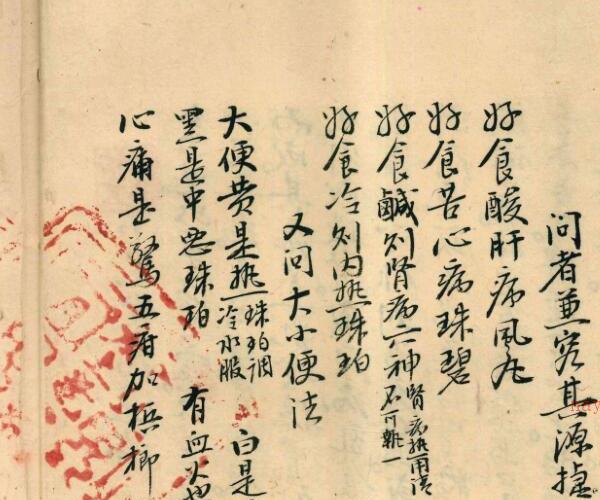 问者兼察其源据
好食酸肝病风丸
好食苦心病珠碧
好食鹹刘肾病六神 肾病热用清 不可乱一
好食冷刘内热珠珀
又问大小便法
大便黄是热珠珀调冷水服 白是
黑是中恶珠珀 有血火
心痛是驚五疳加槟榔